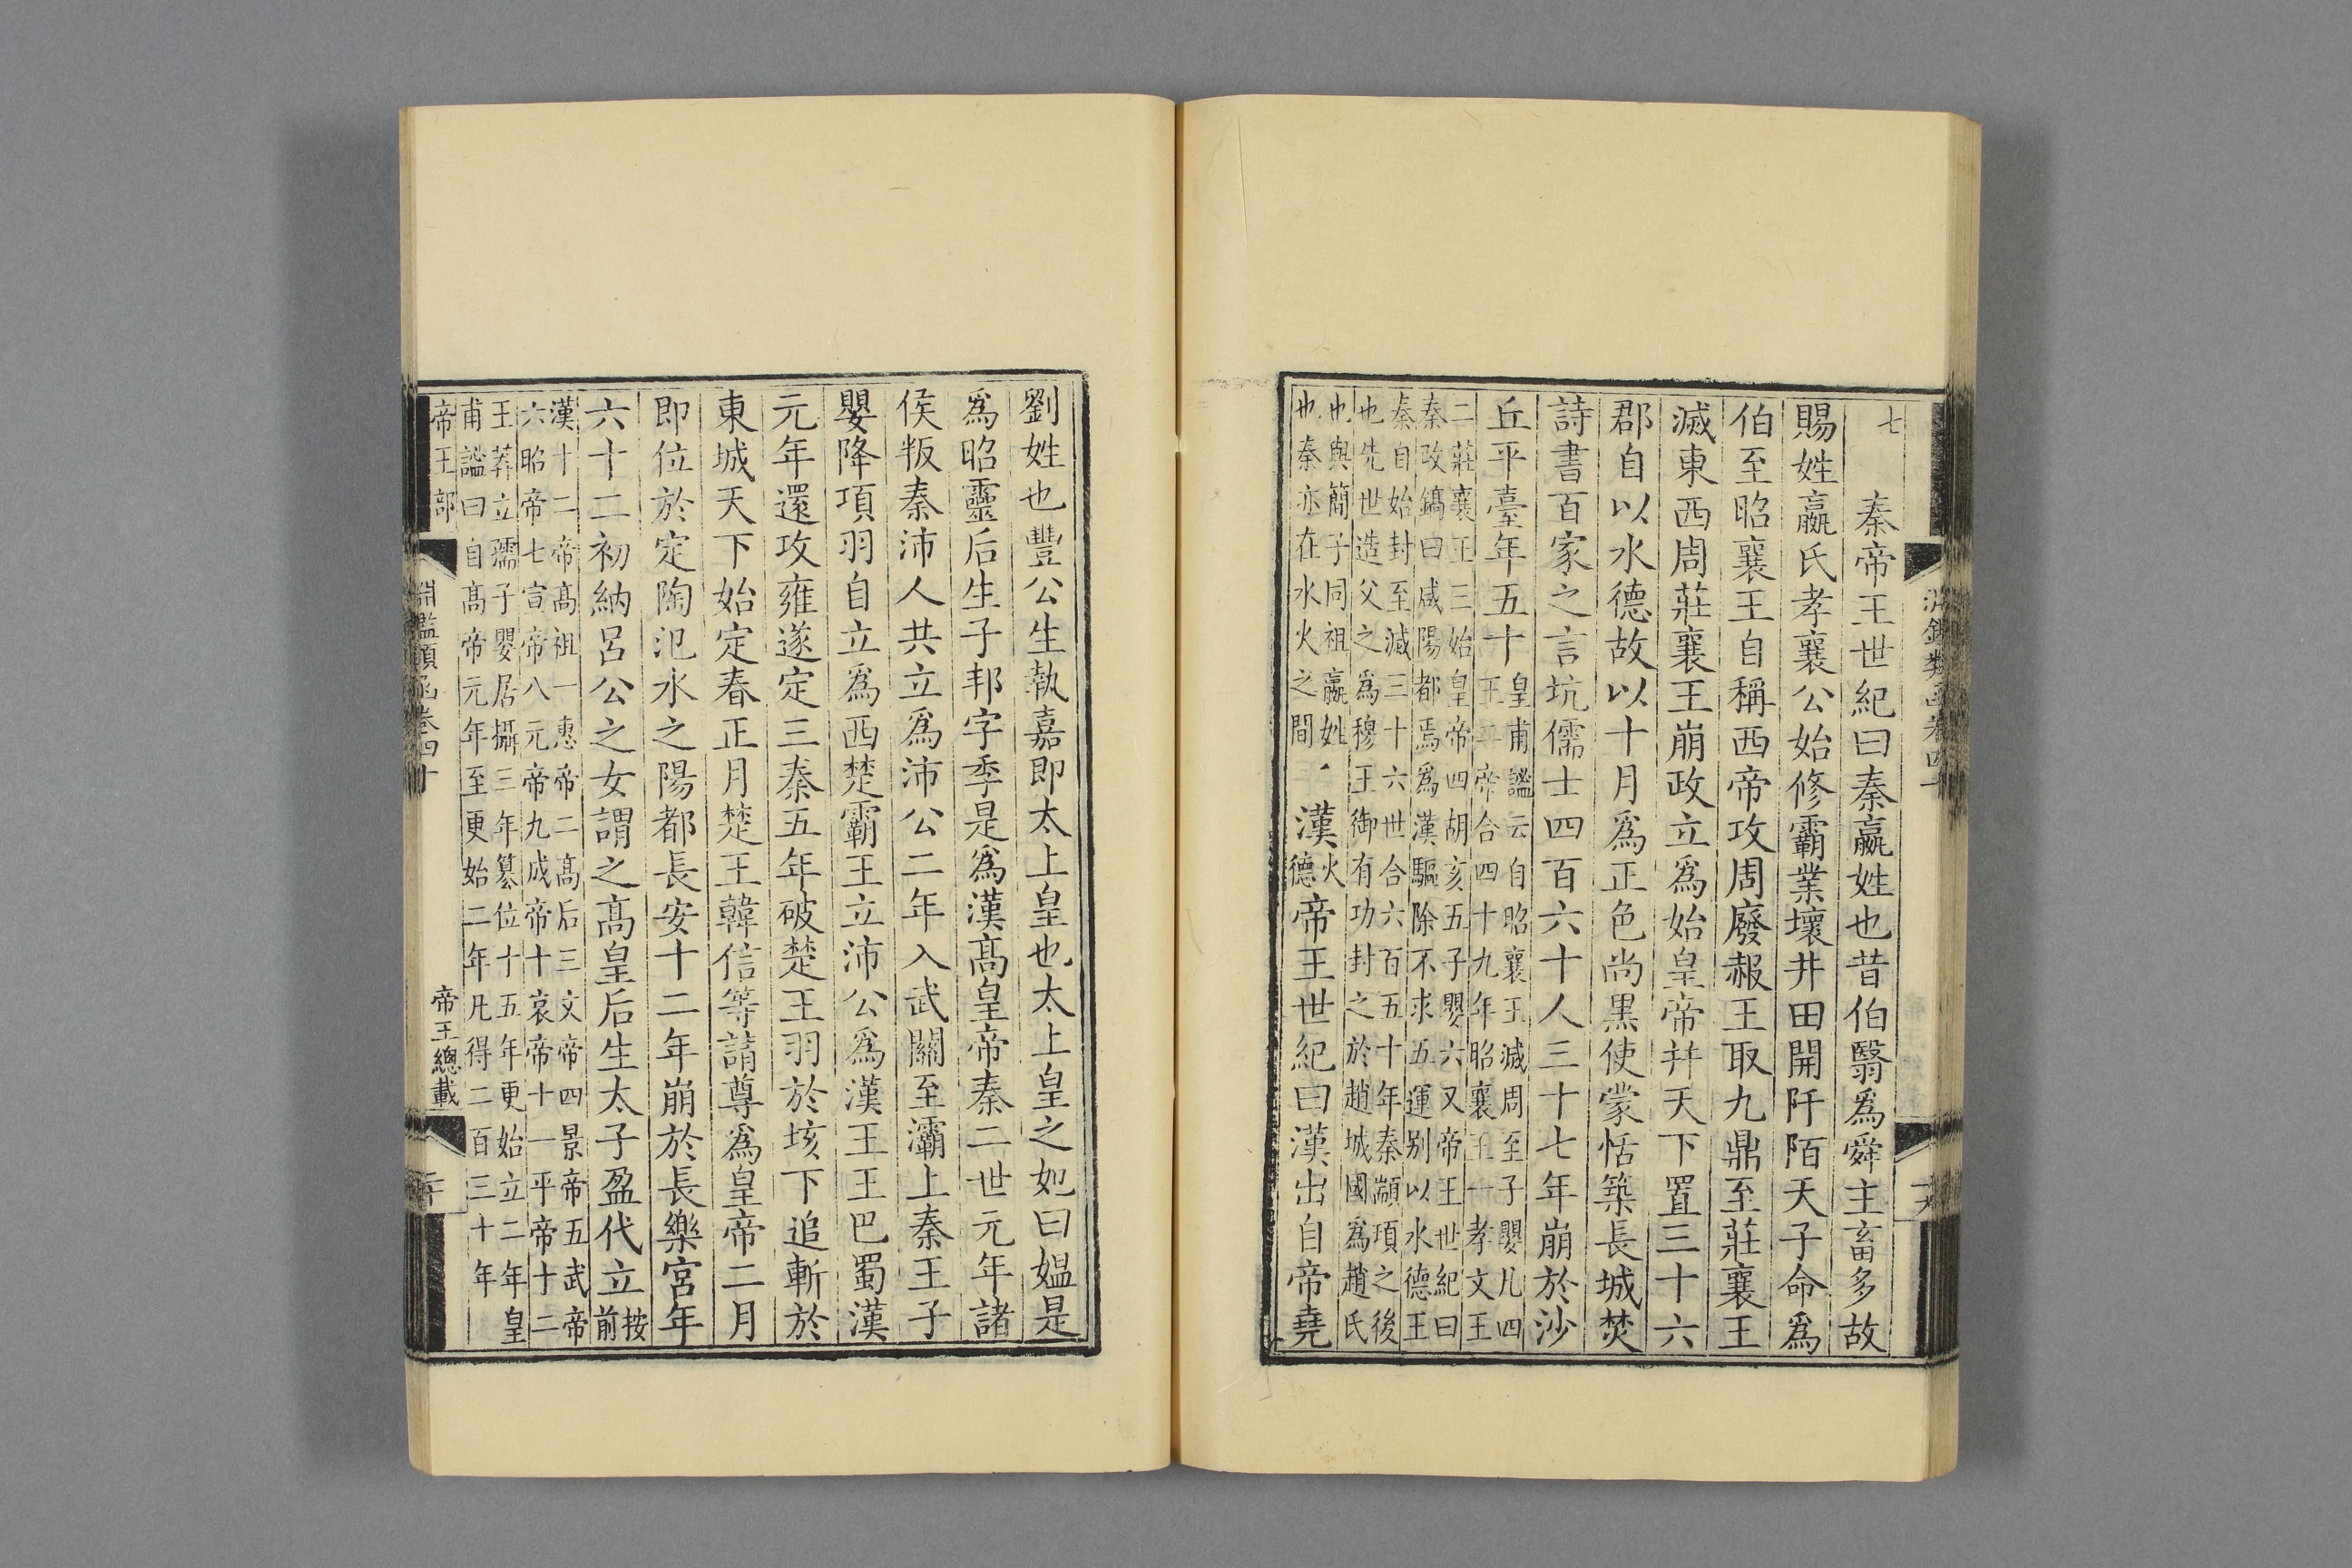 淵鑑類函卷四十
七
秦帝王世紀曰秦嬴姓也昔伯翳爲舜主畜多故
賜姓嬴氏孝襄公始修霸業壞井田開阡陌天子命爲
伯至昭襄王自稱西帝攻周廢赧王取九鼎至莊襄王
滅東西周莊襄王崩政立爲始皇帝幷天下置三十六
郡自以水德故以十月爲正色尚黑使蒙恬築長城焚
詩書百家之言坑儒士四百六十人三十七年崩於沙
丘平臺年五十
皇甫謐云自昭襄王滅周至子嬰凡四
王二帝合四十九年昭襄王一孝文王
二莊襄王三始皇帝四胡亥五子嬰六又帝王世紀曰
秦改鎬曰咸陽都焉爲漢驅除不求五運別以水德王
秦自始封至滅三十六世合六百五十年秦顓頊之後
也先世造父之爲穆王御有功封之於趙城國爲趙氏
也與簡子同祖嬴姓
也秦亦在水火之間
漢火德帝王世紀曰漢出自帝堯
劉姓也豐公生執嘉即太上皇也太上皇之妃曰媼是
爲昭靈后生子邦字季是爲漢髙皇帝秦二世元年諸
侯叛秦沛人共立爲沛公二年入武關至灞上秦王子
嬰降項羽自立爲西楚霸王立沛公爲漢王王巴蜀漢
元年還攻雍遂定三秦五年破楚王羽於垓下追斬於
東城天下始定春正月楚王韓信等請尊爲皇帝二月
即位於定陶汜水之陽都長安十二年崩於長樂宮年
六十二初納呂公之女謂之髙皇后生太子盈代立按前
漢十二帝髙祖一惠帝二髙后三文帝四景帝五武帝
六昭帝七宣帝八元帝九成帝十哀帝十一平帝十二
王莽立孺子嬰居攝三年簒位十五年更始立二年皇
甫謐曰自髙帝元年至更始二年凡得二百三十年
帝王部
淵鑑類函卷四十
帝王總載
二十